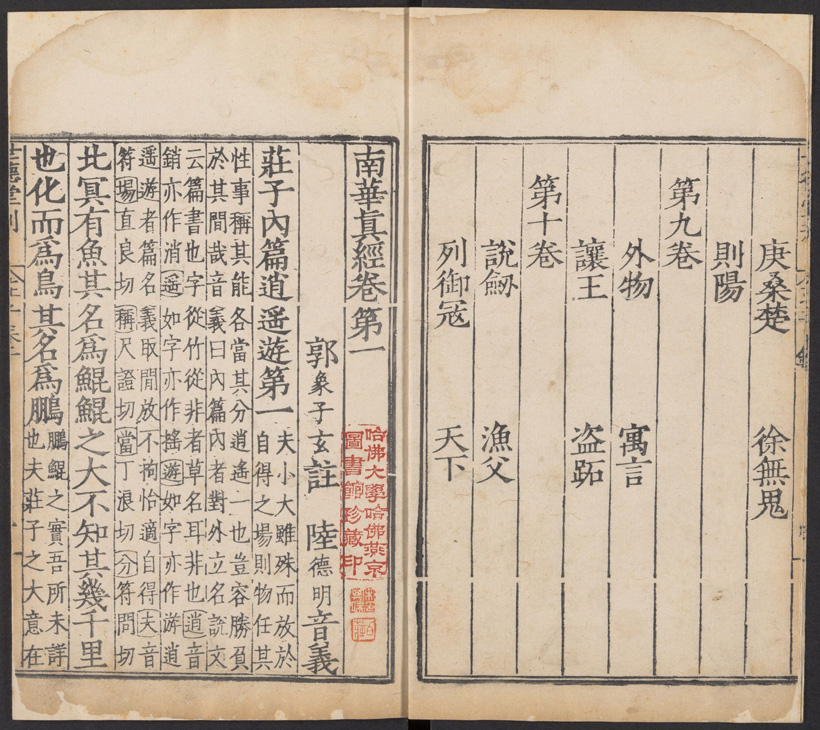 庚桑楚 徐無鬼
則陽
第九卷
外物 寓言
讓王 盗跖
第十卷
說劒 漁父
列御冦 天下
南華眞經卷第一
郭象子玄註 陸德明音義
哈佛大學哈佛燕京
圖書館珍藏印
莊子內篇逍遥遊第一
夫小大雖殊而放於
自得之場則物任其
性事稱其能各當其分逍遥一也豈容勝負
於其間哉音義曰內篇內者對外立名說文
云篇書也字從竹從非者草名耳非也逍音
銷亦作消遥如字亦作搖遊如字亦作游逍
遥遊者篇名義取閒放不拘怡適自得夫音
符場直良切稱尺證切當丁浪切分符問切
北冥有魚其名爲鯤鯤之大不知其幾千里
也化而爲鳥其名爲鵬
鵬鯤之實吾所未詳
也夫莊子之大意在